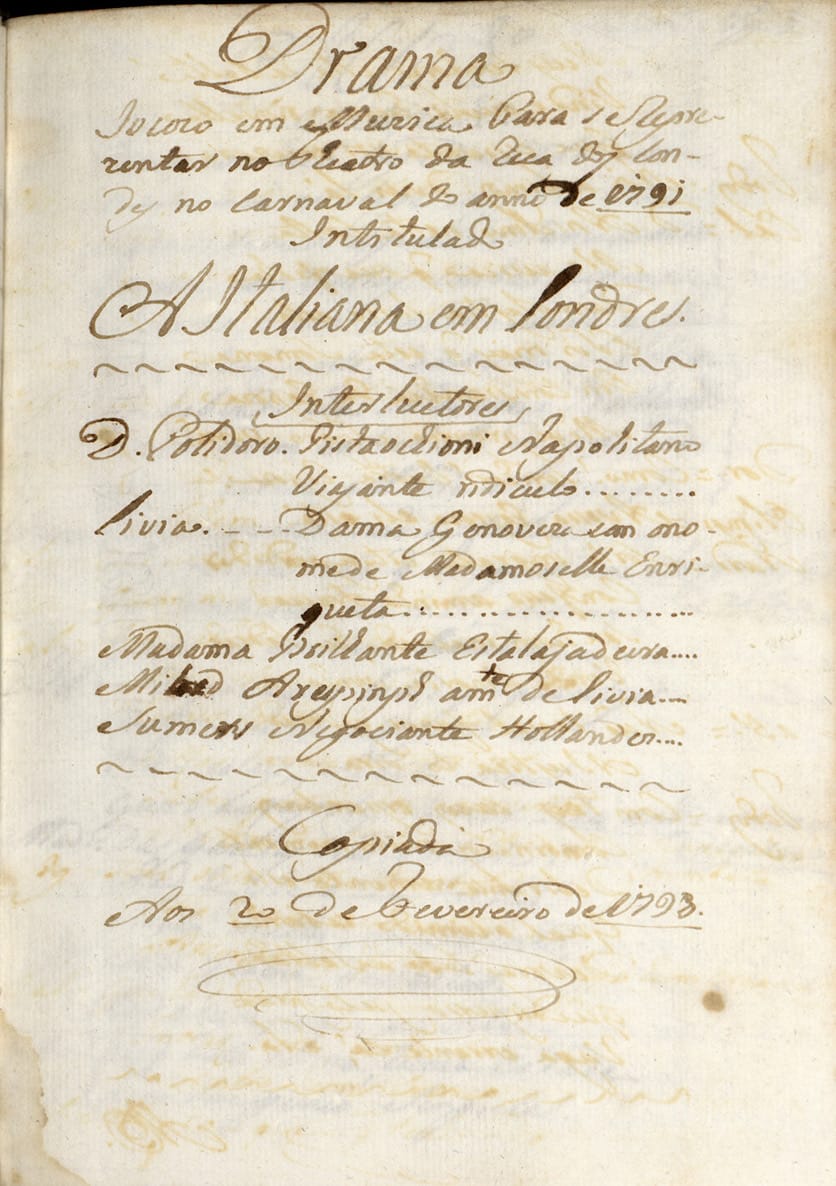 Drama
Jocozo em Muzica Para se Repre-
zentar no Theatro da Rua dos Con-
des no Carnaval do anno de 1791
Intitulado
A Italiana em Londres.
Interluctores
D. Polidoro. Pistaochioni Napolitano
Viajante ridiculo........
Livia. - - - Dama Genoveza com o no-
me de Madamoselle Enri-
queta......................
Madama Brillante Estalajadeira....
Milord Arespinph am.te de Livia....
Sumers Negociante Hollandes....
Copiada
Aos 20 de Fevereiro de 1793.